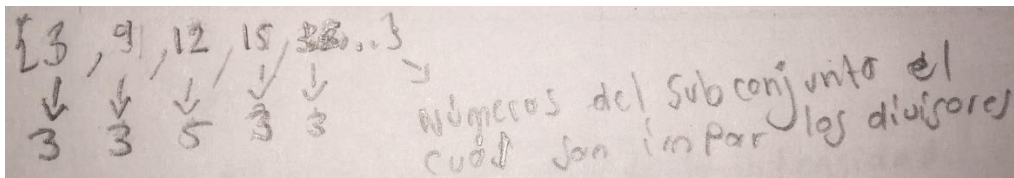 {3, 9, 12, 15, ...}
↓ ↓ ↓ ↓ ↓
3 3 5 3 3
números del subconjunto el
cual son impar los divisores